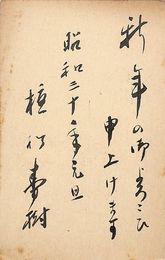 新年の御よろこび
申上げます
昭和三十年元旦
植村寿樹